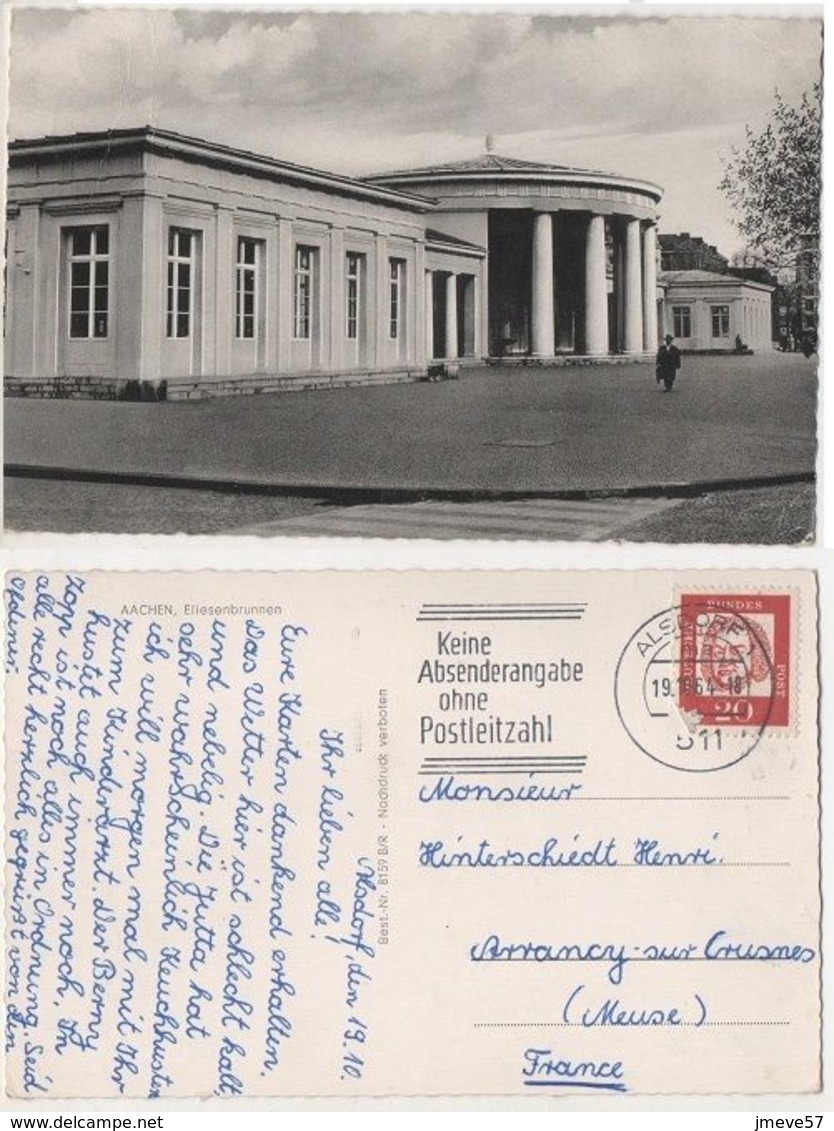 AACHEN, Eliesenbrunnen
Alsdorf, den 19.10.
Ihr lieben alle!
Eure Karten dankend erhalten.
Das Wetter hier ist schlecht kalt,
und nebelig. Die Jutta hat
sehr wahrscheinlich Keuchhusten
ich will morgen mal mit Ihr
zum Kinderarzt. Der Berny
hustet auch immer noch. In
Zopp ist noch alles in Ordnung. Seid
alle recht herzlich gegrüßt von den
Best.-Nr. 8159 B/R - Nachdruck verboten
Keine
Absenderangabe
ohne
Postleitzahl
ALSDORF
19.10.64-18
511
BUNDES
POST
20
Monsieur
Hinterschiedt Henri.
Arrancy-sur Crusnes
(Meuse)
France
delcampe.net
jmeve57